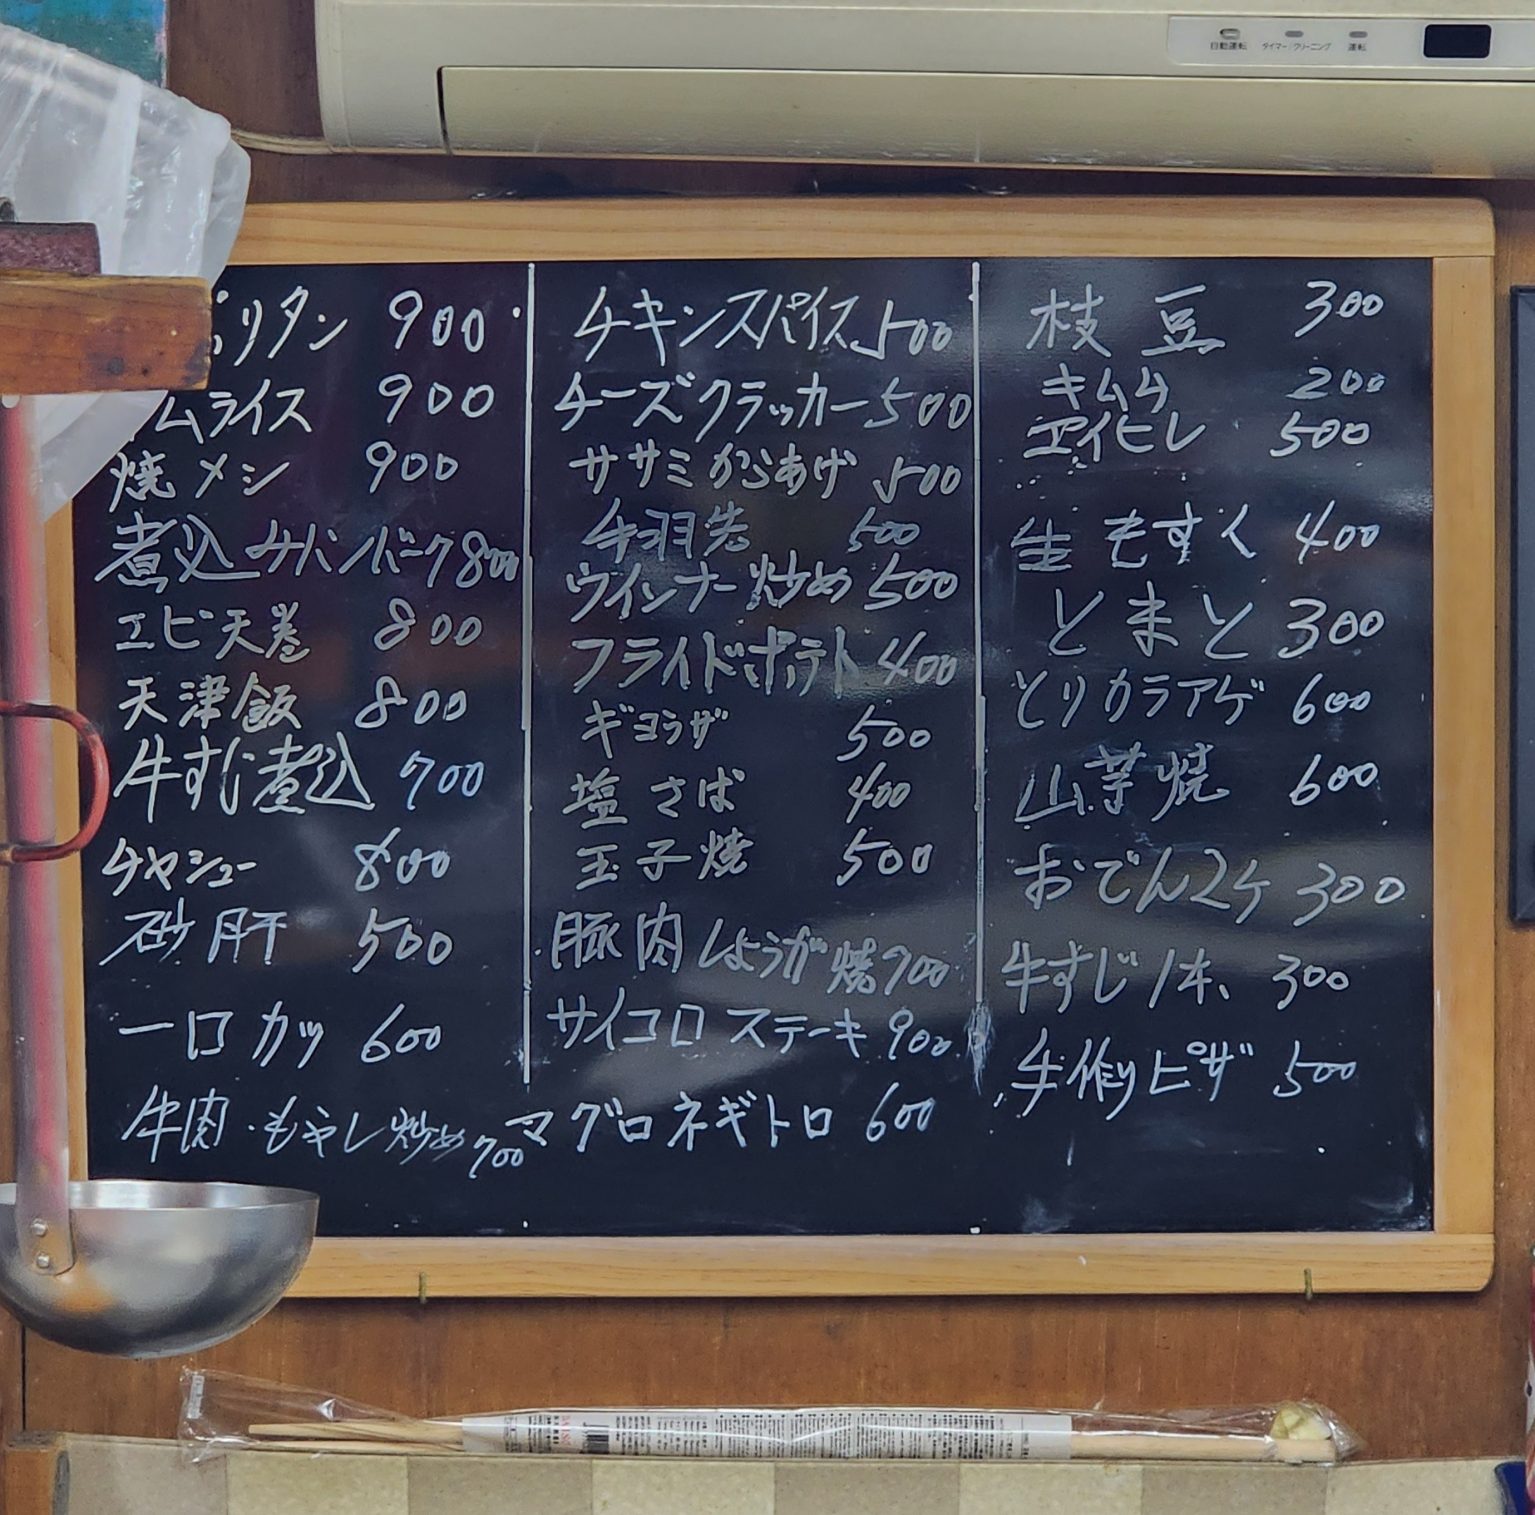 自動運転 タイマー/クリーニング 運転
ポリタン 900
ムライス 900
焼メシ 900
煮込みハンバーク 800
エビ天巻 800
天津飯 800
牛すじ煮込 700
チャシュー 800
砂肝 500
一口カツ 600
牛肉・もやし炒め 700
チキンスパイス 500
チーズクラッカー 500
ササミからあげ 500
手羽先 500
ウインナー炒め 500
フライドポテト 400
ギョウザ 500
塩さば 400
玉子焼 500
豚肉しょうが焼 700
サイコロステーキ 900
マグロネギトロ 600
枝豆 300
キムム 200
エイヒレ 500
生もずく 400
とまと 300
とりカラアゲ 600
山芋焼 600
おでん2ケ 300
牛すじ1本 300
手作りピザ 500